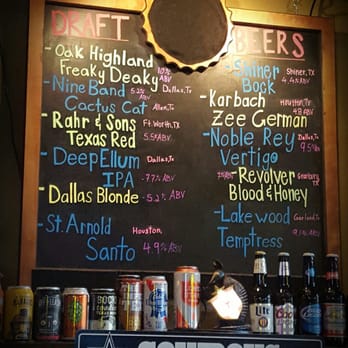 DRAFT
- Oak Highland
Freaky Deaky 10% ABV
- Nine Band 5.2% ABV Dallas, Tx
Cactus Cat Allen, Tx
- Rahr & Sons Ft. Worth, TX
Texas Red 5.5% ABV
- Deep Ellum Dallas, Tx
IPA -7% ABV
- Dallas Blonde - 5.2% ABV
- St. Arnold Houston,
Santo 4.9% ABV
BEERS
- Shiner Shiner, TX
Bock 4.4% ABV
- Karbach Houston, TX
Zee German ABV
- Noble Rey Dallas, Tx
Vertigo 9.5%
- Revolver Granbury, TX
Blood & Honey
- Lakewood Garland, Tx
Temptress 9.1% ABV
Lite
COWBOYS